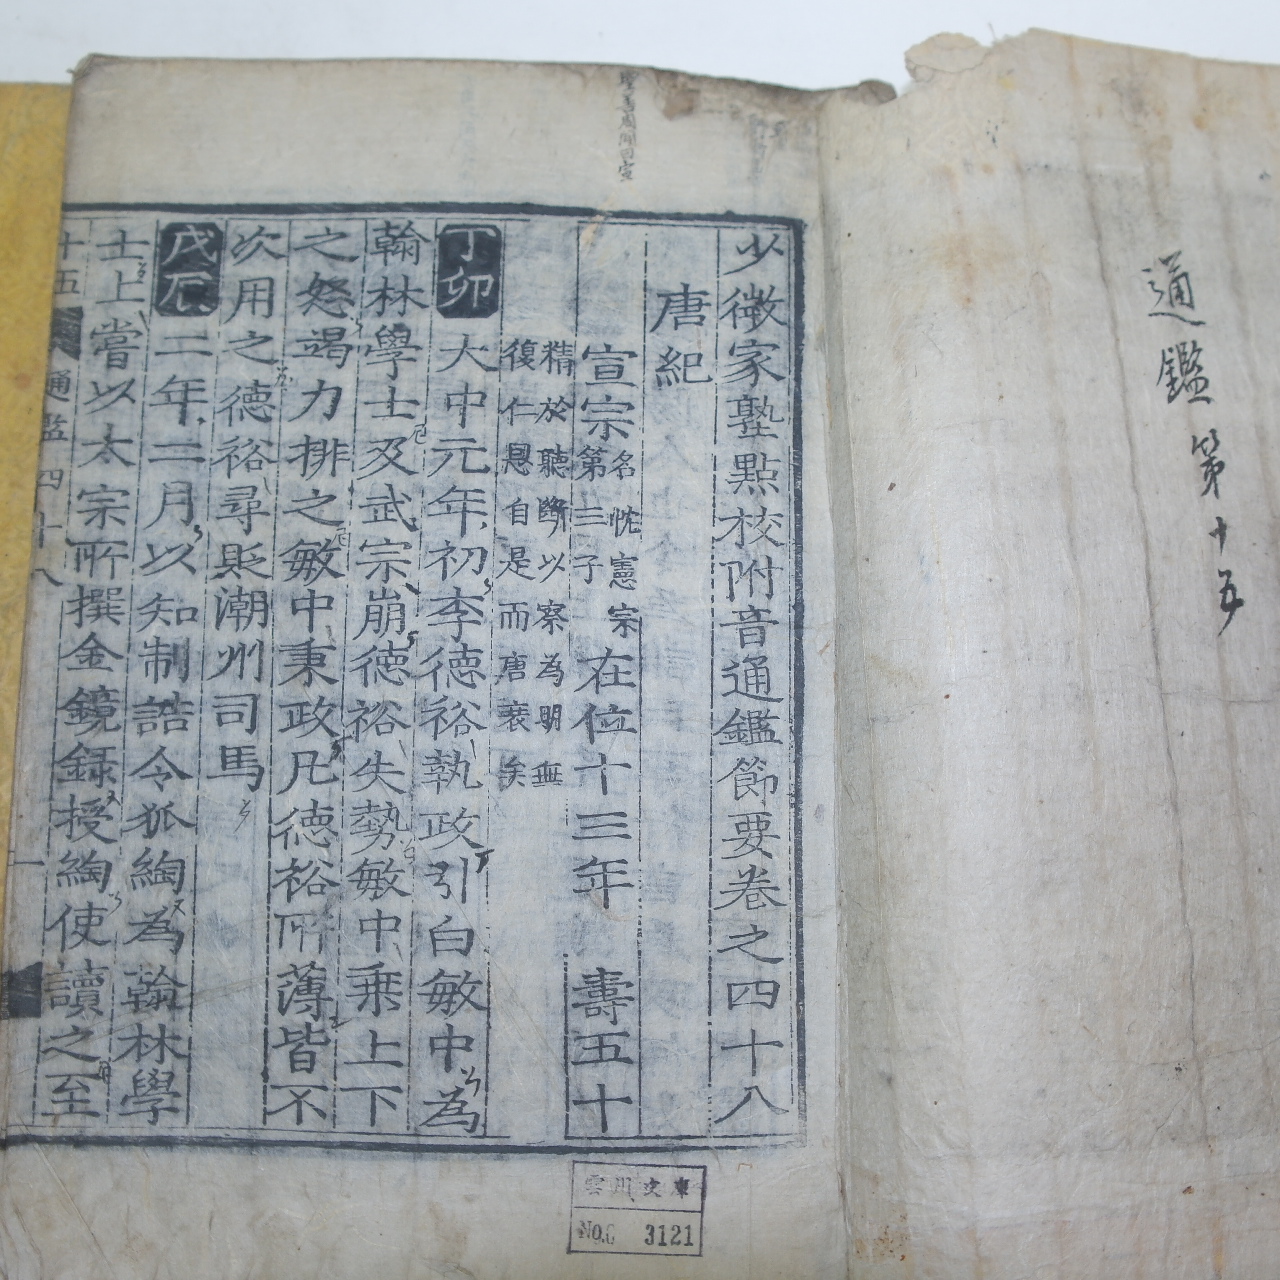 通鑑第十五
少微家塾點校附音通鑑節要卷之四十八
唐紀
宣宗名忱憲宗第三子在位十三年 壽五十
精於聽斷以察為明無
復仁恩自是而唐衰矣
丁卯大中元年初李德裕執政引白敏中為
翰林學士及武宗崩德裕失勢敏中乗上下
之怒竭力排之敏中秉政凡德裕所薄皆不
次用之德裕尋貶潮州司馬
戊辰二年二月以知制誥令狐綯為翰林學
士上嘗以太宗所撰金鏡録授綯使讀之至
十五 通鑑四十八 一
雲川文庫
No. 3121